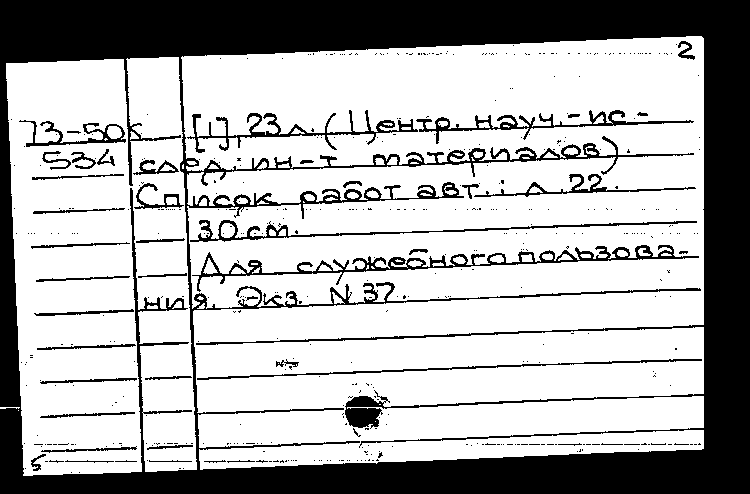 2
73-50к [1], 23 л. (Центр. науч.-ис-
534 след. ин-т материалов).
Список работ авт.: л. 22.
30 см.
Для служебного пользова-
ния. Экз. N 37.
5